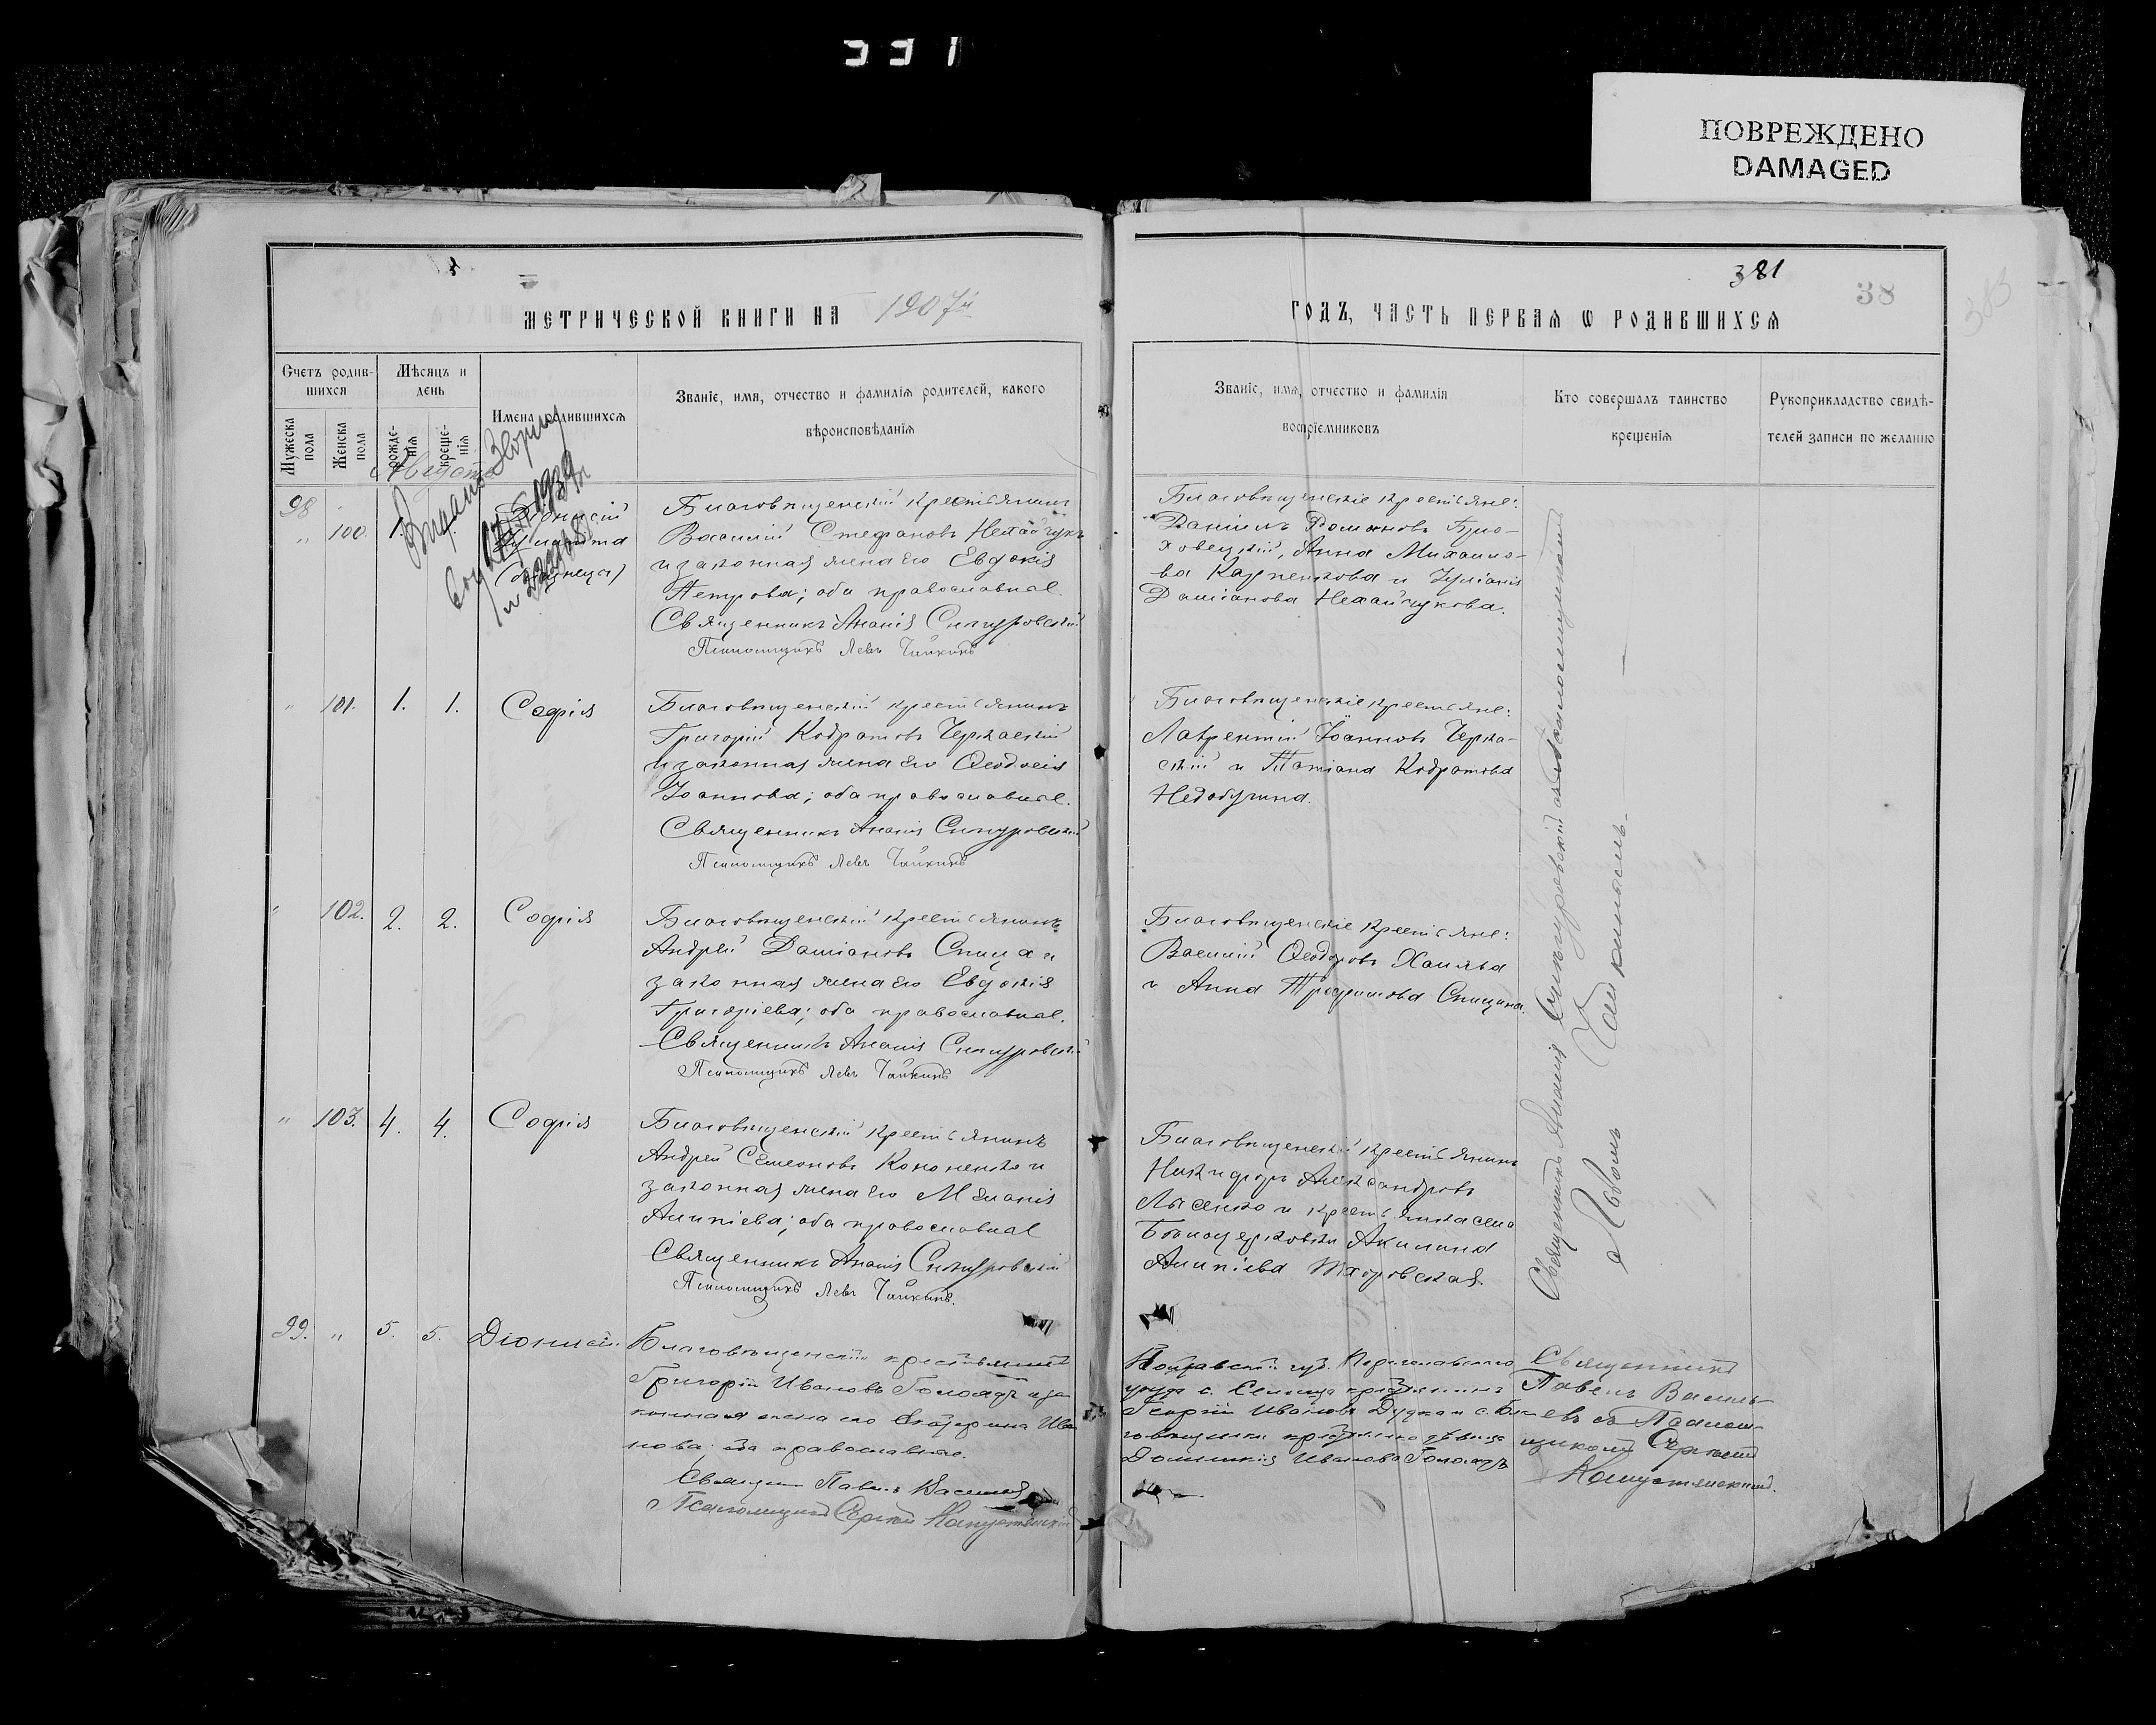 331
ПОВРЕЖДЕНО
DAMAGED
381
38
383
МЕТРИЧЕСКОЙ КНИГИ НА 1907й
ГОДЪ, ЧАСТЬ ПЕРВАЯ Ѡ РОДИВШИХСЯ
Счетъ родив-
шихся
Мѣсяцъ и
день
Имена родившихся
Званіе, имя, отчество и фамилія родителей, какого
вѣроисповѣданія
Мужеска пола
Женска пола
рожде-
нія
креще-
нія
Званіе, имя, отчество и фамилія
воспріемниковъ
Кто совершалъ таинство
крещенія
Рукоприкладство свидѣ-
телей записи по желанію
Августъ
98
" 100. 1.
Діонисій
(близнецы)
Благовѣщенскій крестьянинъ
Василій Стефановъ Нехайчукъ
и законная жена его Евдокія
Петрова; оба православные.
Священникъ Ананія Снѣгуровскій
Псаломщикъ Левъ Чайкинъ
Благовѣщенскіе крестьяне:
Даніилъ Романовъ
Анна Михаило-
ва Карпенкова и Іуліанія
Даміанова Нехайчукова.
" 101. 1. 1. Софія
Благовѣщенскій крестьянинъ
Григорій Кодратовъ Черкаскій
и законная жена его Ѳеодосія
Іоаннова; оба православные.
Священникъ Ананія Снѣгуровскій
Псаломщикъ Левъ Чайкинъ
Благовѣщенскіе крестьяне:
Лаврентій Іоанновъ Черка-
скій и Татіана Кодратова
Недобугина.
" 102. 2. 2. Софія
Благовѣщенскій крестьянинъ
Андрей Даміановъ Спица и
законная жена его Евдокія
Григоріева; оба православные.
Священникъ Ананія Снѣгуровскій
Псаломщикъ Левъ Чайкинъ
Благовѣщенскіе крестьяне:
Василій Ѳеодоровъ Халява
и Анна Трофимова Спицина.
" 103. 4. 4. Софія
Благовѣщенскій крестьянинъ
Андрей Семеоновъ Кононенко и
законная жена его Меланія
Алипіева; оба православные
Священникъ Ананія Снѣгуровскій
Псаломщикъ Левъ Чайкинъ.
Благовѣщенскій крестьянинъ
Никифоръ Александровъ
Лысенко и крестьянка села
Бѣлоцерковки Акилина
Алипіева
Священникъ Ананія Снѣгуровскій съ псаломщикомъ
Львомъ Чайкинымъ.
99. " 5. 5. Діонисій.
Благовѣщенскій крестьянинъ
Григорій Ивановъ Голоядъ и за
конная жена его Екатерина Ива
нова; оба православные.
Священ Павелъ Василіев
Псаломщикъ Сергій Капустянскій
Полтавской губ. Переяславскаго
уезда с. крестьянинъ
Георгій Ивановъ Дудка и с. Бла
говѣщенки крестьянка дѣвица
Домникія Иванова Голоядъ
Священникъ
Павелъ Василь-
евъ съ Псалом-
щикомъ Сергіемъ
Капустянскимъ.